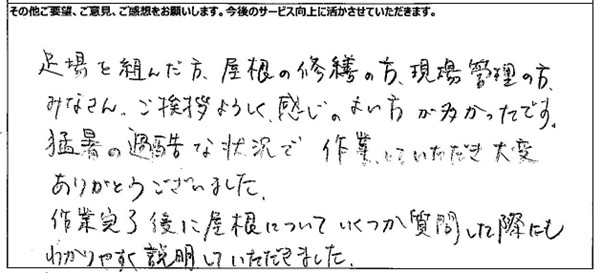 その他ご要望、ご意見、ご感想をお願いします。今後のサービス向上に活かさせていただきます。
足場を組んだ方、屋根の修繕の方、現場管理の方、
みなさん、ご挨拶よろしく、感じのよい方が多かったです。
猛暑の過酷な状況で作業していただき大変
ありがとうございました。
作業完了後に屋根についていくつか質問した際にも
わかりやすく説明していただきました。